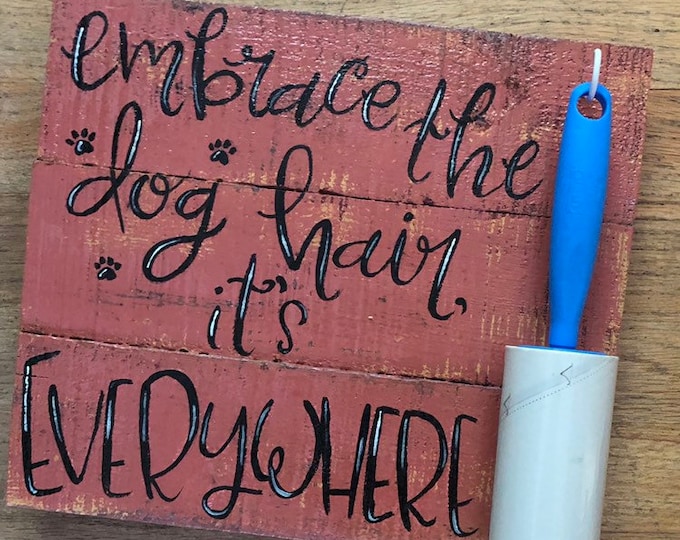 embrace the
dog hair,
it's
EVERYWHERE